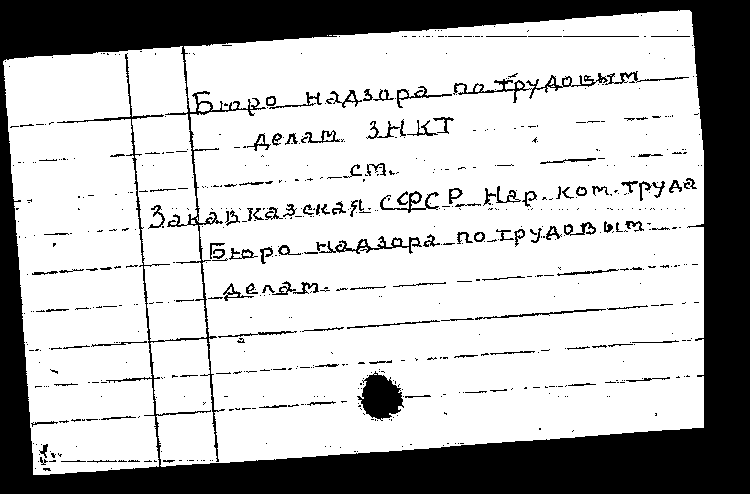 Бюро надзора по трудовым
делам ЗНКТ
см.
Закавказская ССФСР Нар. ком. труда
Бюро надзора по трудовым
делам.